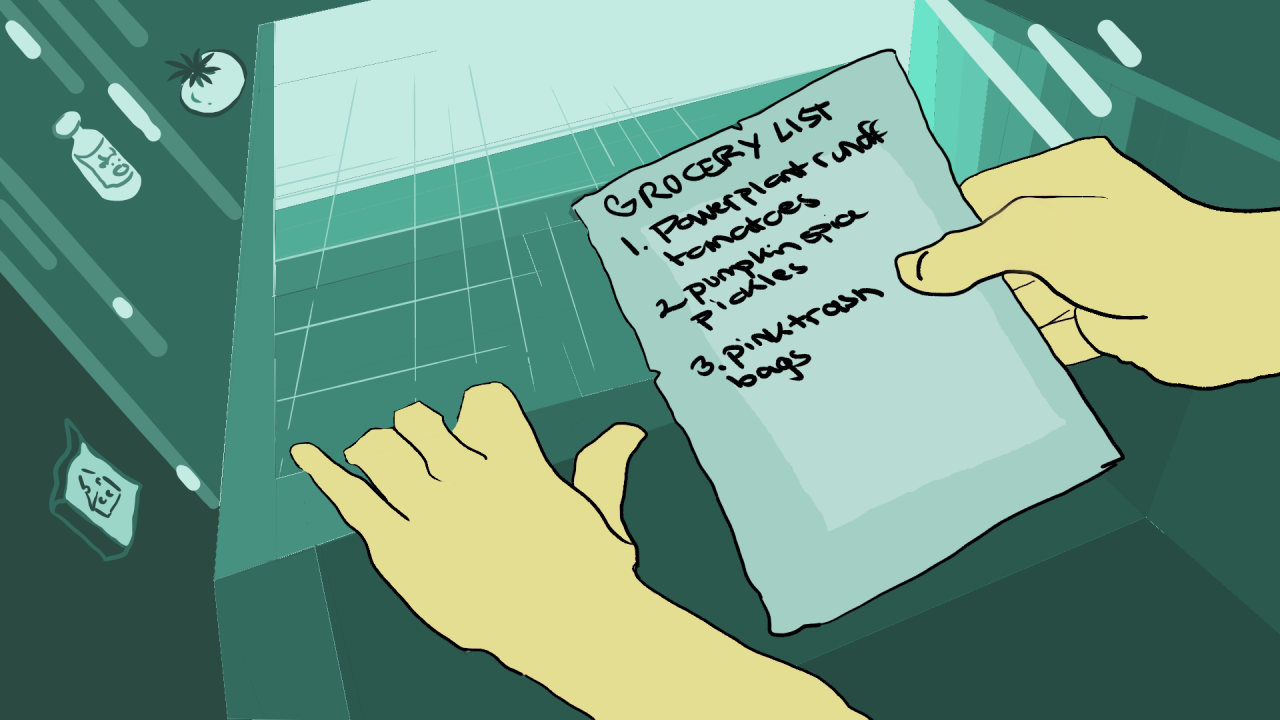 GROCERY LIST
1. Powerplant runoff
tomatoes
2 pumpkin spice
Pickles
3. pink trash
bags